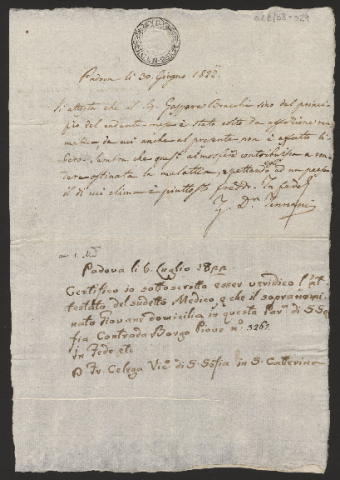 Padova li 30. Giugno 1822.
Si attesta che il Sr. Gaspare sino dal princi-
pio del andante mese è stato colto da affezione reu-
matica da cui anche al presente non è affatto li-
bero. Sembra che quest' atmosfera contribuisca a ren-
dere ostinata la malattia, rispettando ad un paese
il di cui clima è piuttosto freddo. In fede
Dr.
Padova li 6. Luglio 1822
Certifico io sottoscritto esser veridico l'at-
testato del sudetto Medico, e che il sopranomi-
nato Giovane domicilia in questa Par. di S. So-
fia Contrada Borgo Piove n.o 3267.
In Fede etc
Vic.o di S. Sofia in S. Catterina